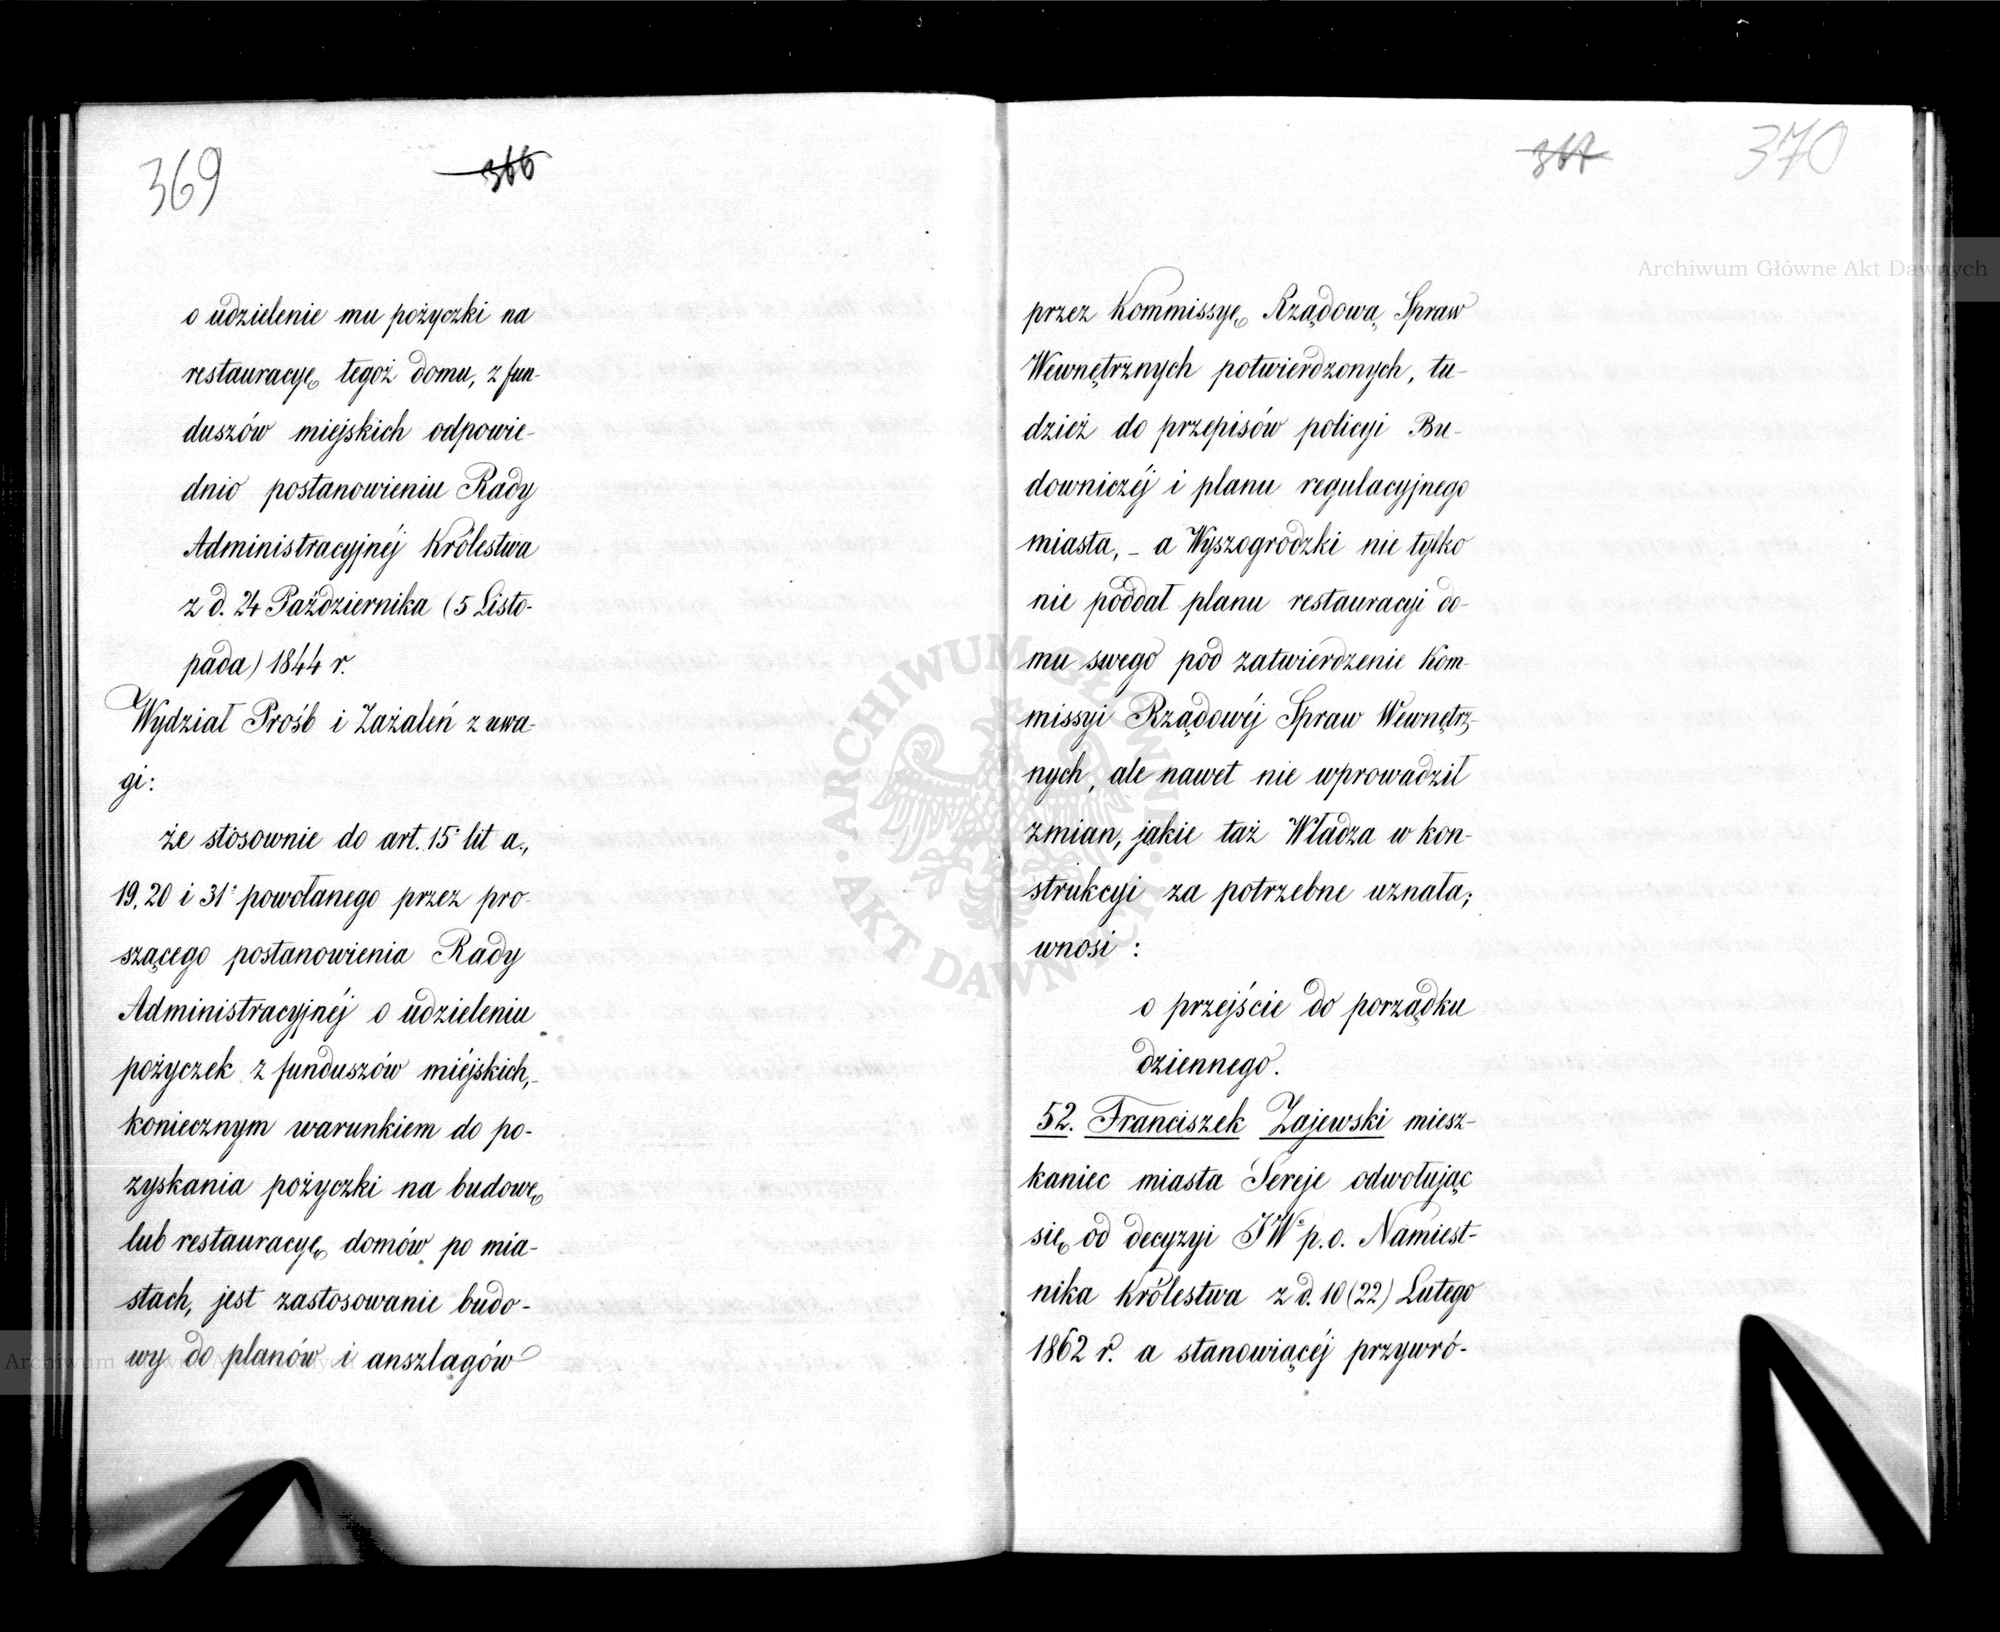 369
366
o udzielenie mu pożyczki na
restauracyę tegoż domu, z fun-
duszów miejskich odpowie-
dnio postanowieniu Rady
Administracyjnéj Królestwa
z d. 24 Października (5 Listo-
pada) 1844 r.
Wydział Prośb i Zażaleń z uwa-
gi:
że stósownie do art. 15 lit a.,
19, 20 i 31 powołanego przez pro-
szącego postanowienia Rady
Administracyjnéj o udzieleniu
pożyczek z funduszów miéjskich,
koniecznym warunkiem do po-
zyskania pożyczki na budowę
lub restauracyę domów po mia-
stach, jest zastosowanie budo-
wy do planów i anszlagów
367
370
przez Kommissyę Rządową Spraw
Wewnętrznych potwierdzonych, tu-
dzież do przepisów policyi Bu-
downiczéj i planu regulacyjnego
miasta, - a Wyszogrodzki nie tylko
nie poddał planu restauracyi do-
mu swego pod zatwierdzenie Kom-
missyi Rządowéj Spraw Wewnętrz-
nych, ale nawet nie wprowadził
zmian, jakie taż Władza w kon-
strukcyi za potrzebne uznała;
wnosi :
o przejście do porządku
dziennego.
52. Franciszek Zajewski miesz-
kaniec miasta Sereje odwołując
się od decyzyi JW p. o. Namiest-
nika Królestwa z d. 10 (22) Lutego
1862 r. a stanowiącéj przywró-
Archiwum Główne Akt Dawnych
ARCHIWUM GŁÓWNE AKT DAWNYCH